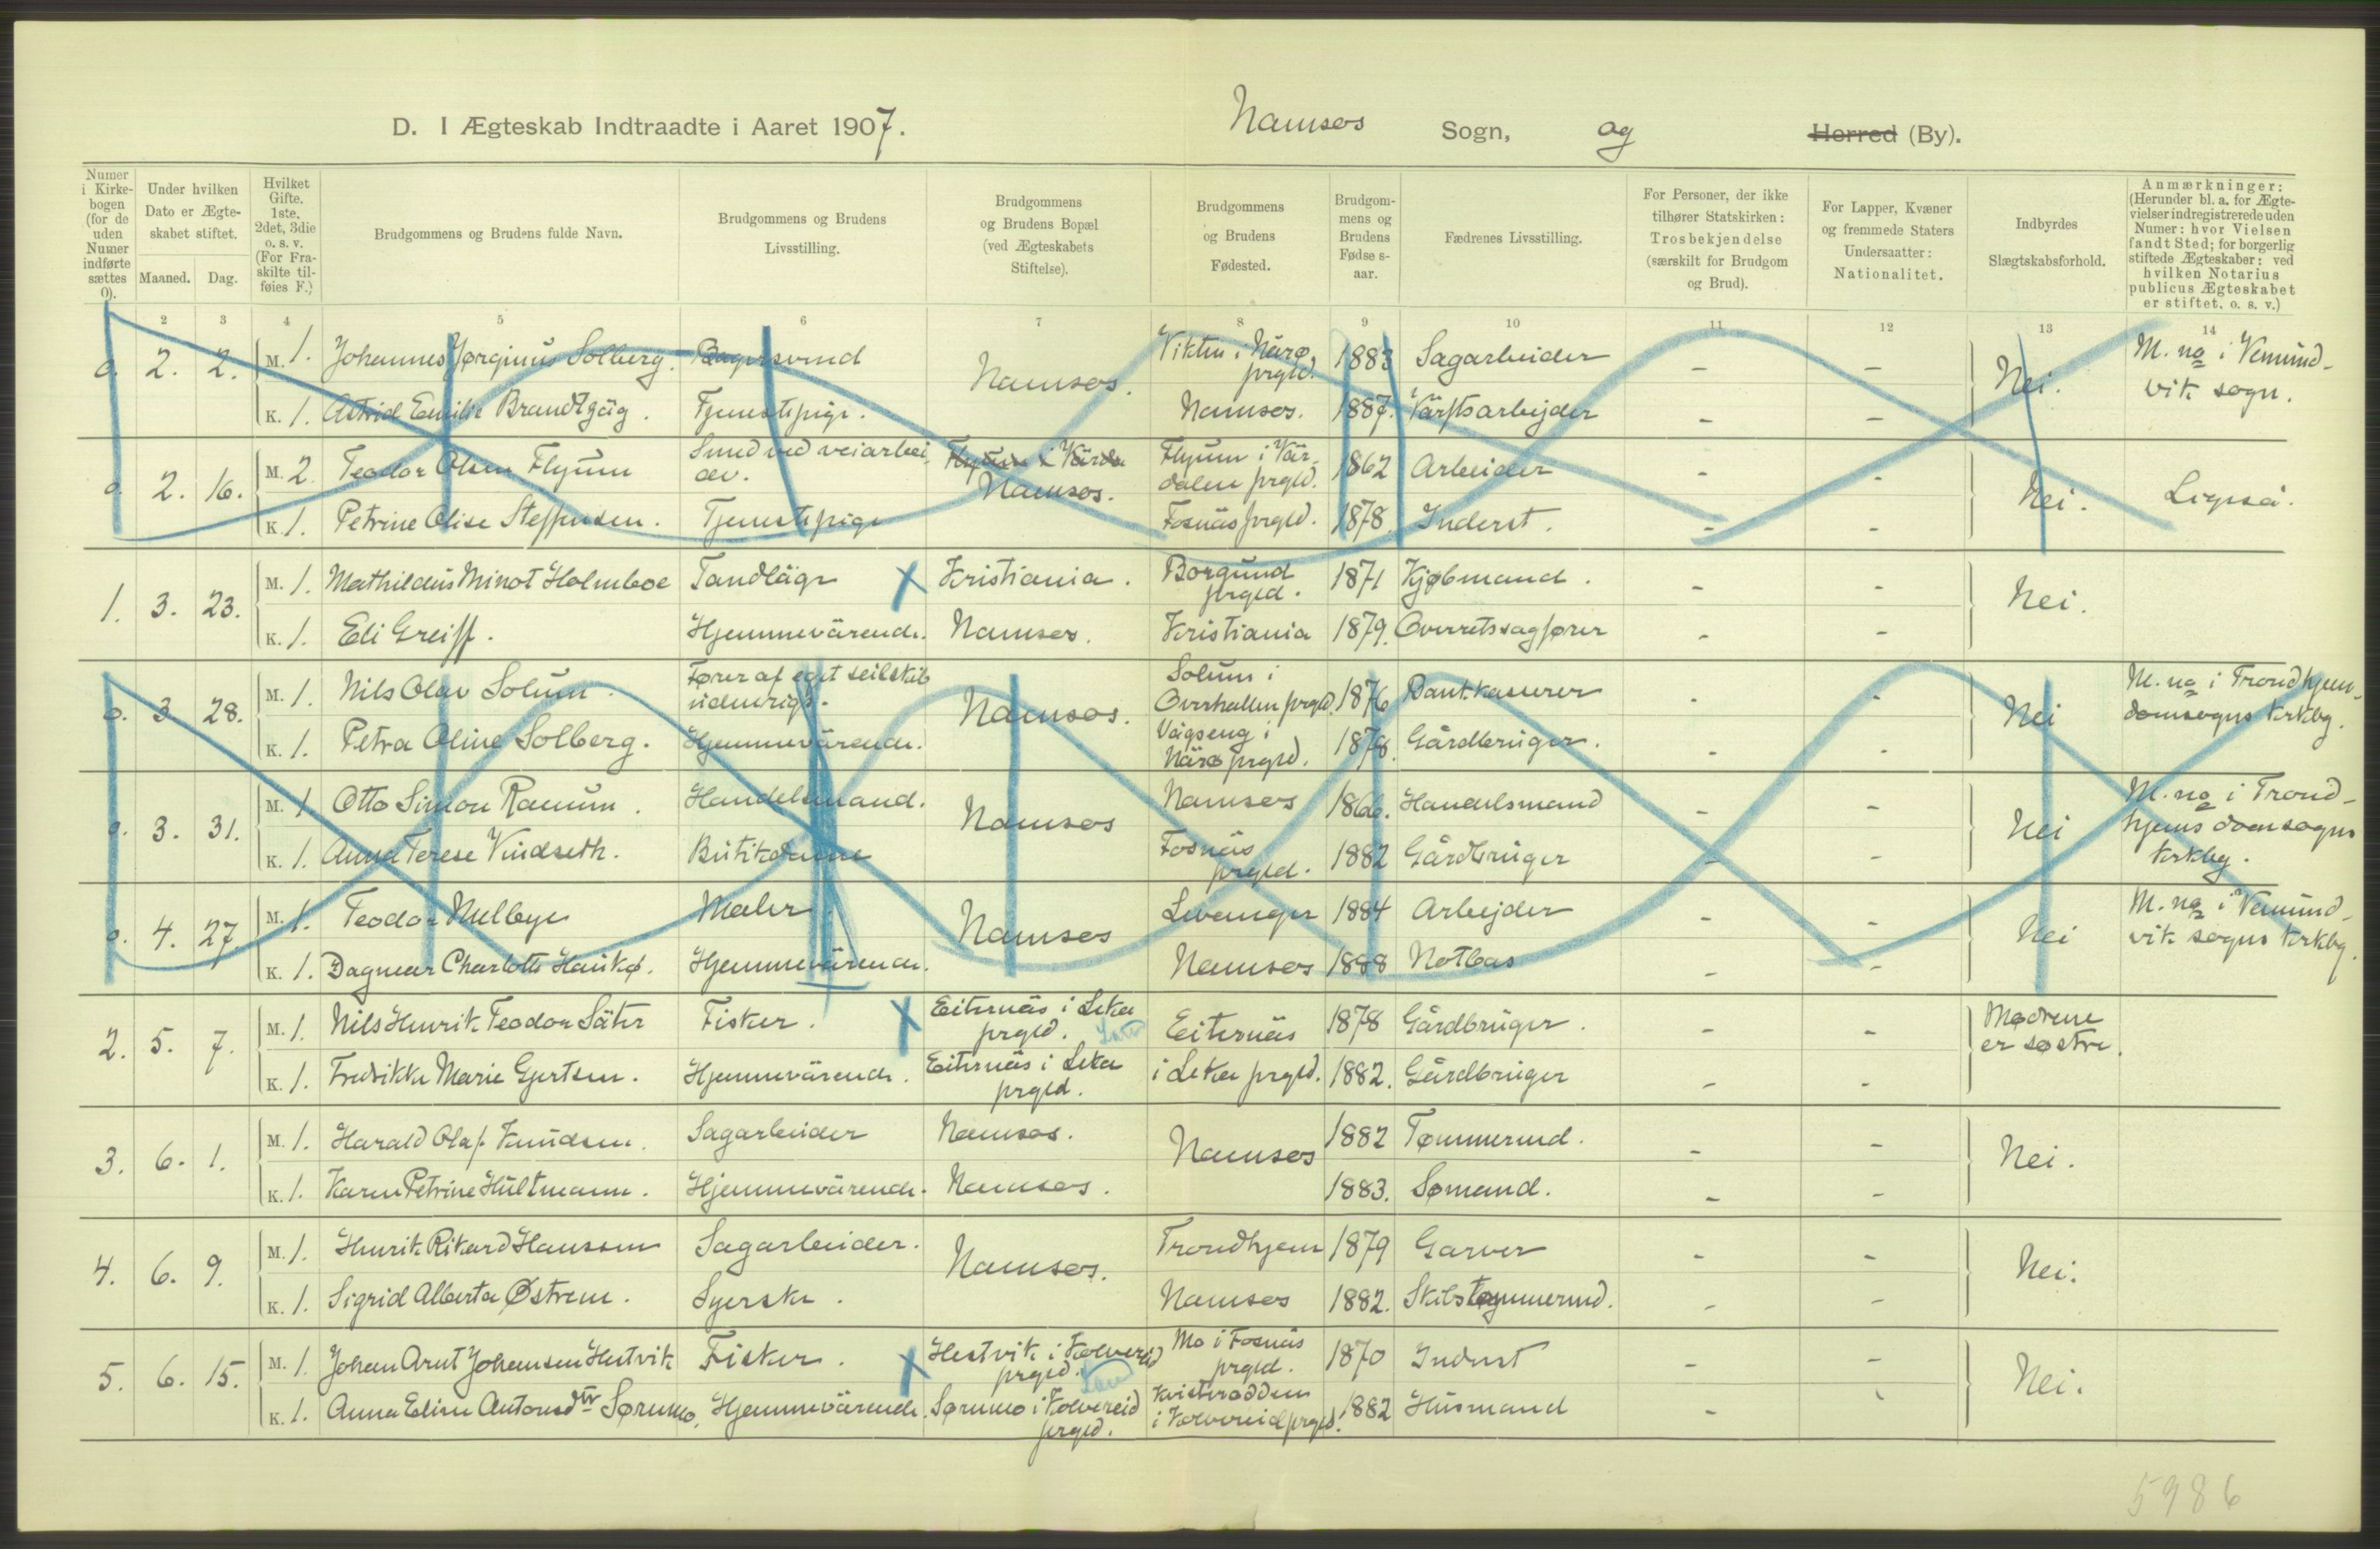 D. I Ægteskab Indtraadte i Aaret 1907. Namsos Sogn, og Herred (By).
Numer i Kirkebogen (for de uden Numer indførte sættes 0).
Under hvilken Dato er Ægteskabet stiftet.
Maaned. Dag.
Hvilket Gifte. 1ste, 2det, 3die o. s. v. (For Fraskilte tilføies F.)
Brudgommens og Brudens fulde Navn.
Brudgommens og Brudens Livsstilling.
Brudgommens og Brudens Bopæl (ved Ægteskabets Stiftelse).
Brudgommens og Brudens Fødested.
Brudgommens og Brudens Fødselsaar.
Fædrenes Livsstilling.
For Personer, der ikke tilhører Statskirken: Trosbekjendelse (særskilt for Brudgom og Brud).
For Lapper, Kvæner og fremmede Staters Undersaatter: Nationalitet.
Indbyrdes Slægtskabsforhold.
Anmærkninger: (Herunder bl. a. for Ægtevielser indregistrerede uden Numer: hvor Vielsen fandt Sted; for borgerlig stiftede Ægteskaber: ved hvilken Notarius publicus Ægteskabet er stiftet, o. s. v.)
2 3 4 5 6 7 8 9 10 11 12 13 14
o. 2. 2. M. 1. Johannes Jørginus Solberg. Bagersvend Namsos. Vikten i Närø prgld. 1883 Sagarbeider - - Nei. M. no i Vemundvik sogn.
K. 1. Astrid Emilie Brandtzäg. Tjenestepige. Namsos. 1887. Värftsarbejder - -
o. 2. 16. M. 2 Teodor Olsen Flyum Smed ved veiarbeider. Namsos. Flyum i Värdalen prgld. 1862 Arbeider - - Nei. Ligeså.
K. 1. Petrine Olise Steffensen. Tjenestepige Fosnäs prgld. 1878 Inderst. - -
1. 3. 23. M. 1. Mathildius Minot Holmboe Tandläge X Kristiania. Borgund prgld. 1871 Kjøbmand. - - Nei.
K. 1. Eli Greiff. Hjemmevärende. Namsos. Kristiania 1879. Overretssagfører - -
o. 3 28. M. 1. Nils Olav Solum. Fører af eget seilskib udenrigs. Namsos. Solum i Overhallen prgld. 1876 Bankkaserer - - Nei M. no i Trondhjem domsogns kirkbg.
K. 1. Petra Oline Solberg. Hjemmevärende. Vågseng i Närø prgld. 1878. Gårdbruger. - -
o. 3. 31. M. 1 Otto Simon Ranum. Handelsmand. Namsos Namsos 1866. Handelsmand - - Nei M. no i Trondhjems domsogns kirkbg.
K. 1. Anna Terese Vindseth. Butikdame Fosnäs prgld. 1882 Gårdbruger - -
o. 4. 27. M. 1. Teodor Melbye Maler Namsos Levanger 1884 Arbejder - - Nei M. no i Vemundvik sogns kirkbg.
K. 1. Dagmar Charlotte Haukø. Hjemmevärende. Namsos 1888 Notbas - -
2. 5. 7. M. 1. Nils Henrik Teodor Säter Fisker. X Eiternäs i Leka prgld. Eiternäs 1878 Gårdbruger. - - Mødrene er søstre.
K. 1. Fredrikke Marie Gjertsen. Hjemmevärende. Eiternäs i Leka prgld. i Leka prgld. 1882. Gårdbruger - -
3. 6. 1. M. 1. Harald Olaf Knudsen. Sagarbeider Namsos. Namsos 1882 Tømmermd. - - Nei.
K. 1. Karen Petrine Hultmann. Hjemmevärende. Namsos. 1883. Sømand. - -
4. 6. 9. M. 1. Henrik Rikard Hanssen Sagarbeider. Namsos. Trondhjem 1879 Garver - - Nei.
K. 1. Sigrid Alberta Østrem. Syerske. Namsos 1882. Skibstømmermd. - -
5. 6. 15. M. 1. Johan Arnt Johansen Hestvik Fisker. X Hestvik i Kolvereid prgld. Mo i Fosnäs prgld. 1870 Inderst - - Nei.
K. 1. Anna Eline Antonsdtr Sørumo. Hjemmevärende. Sørumo i Kolvereid prgld. i Kolvereid prgld. 1882 Husmand -
5986